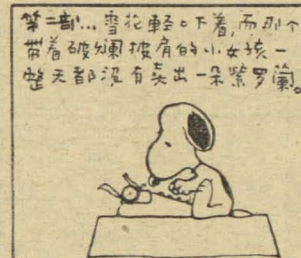 第二部…雪花轻轻下着,而那个
带着破烂披肩的小女孩一
整天都没有卖出一朵紫罗兰。